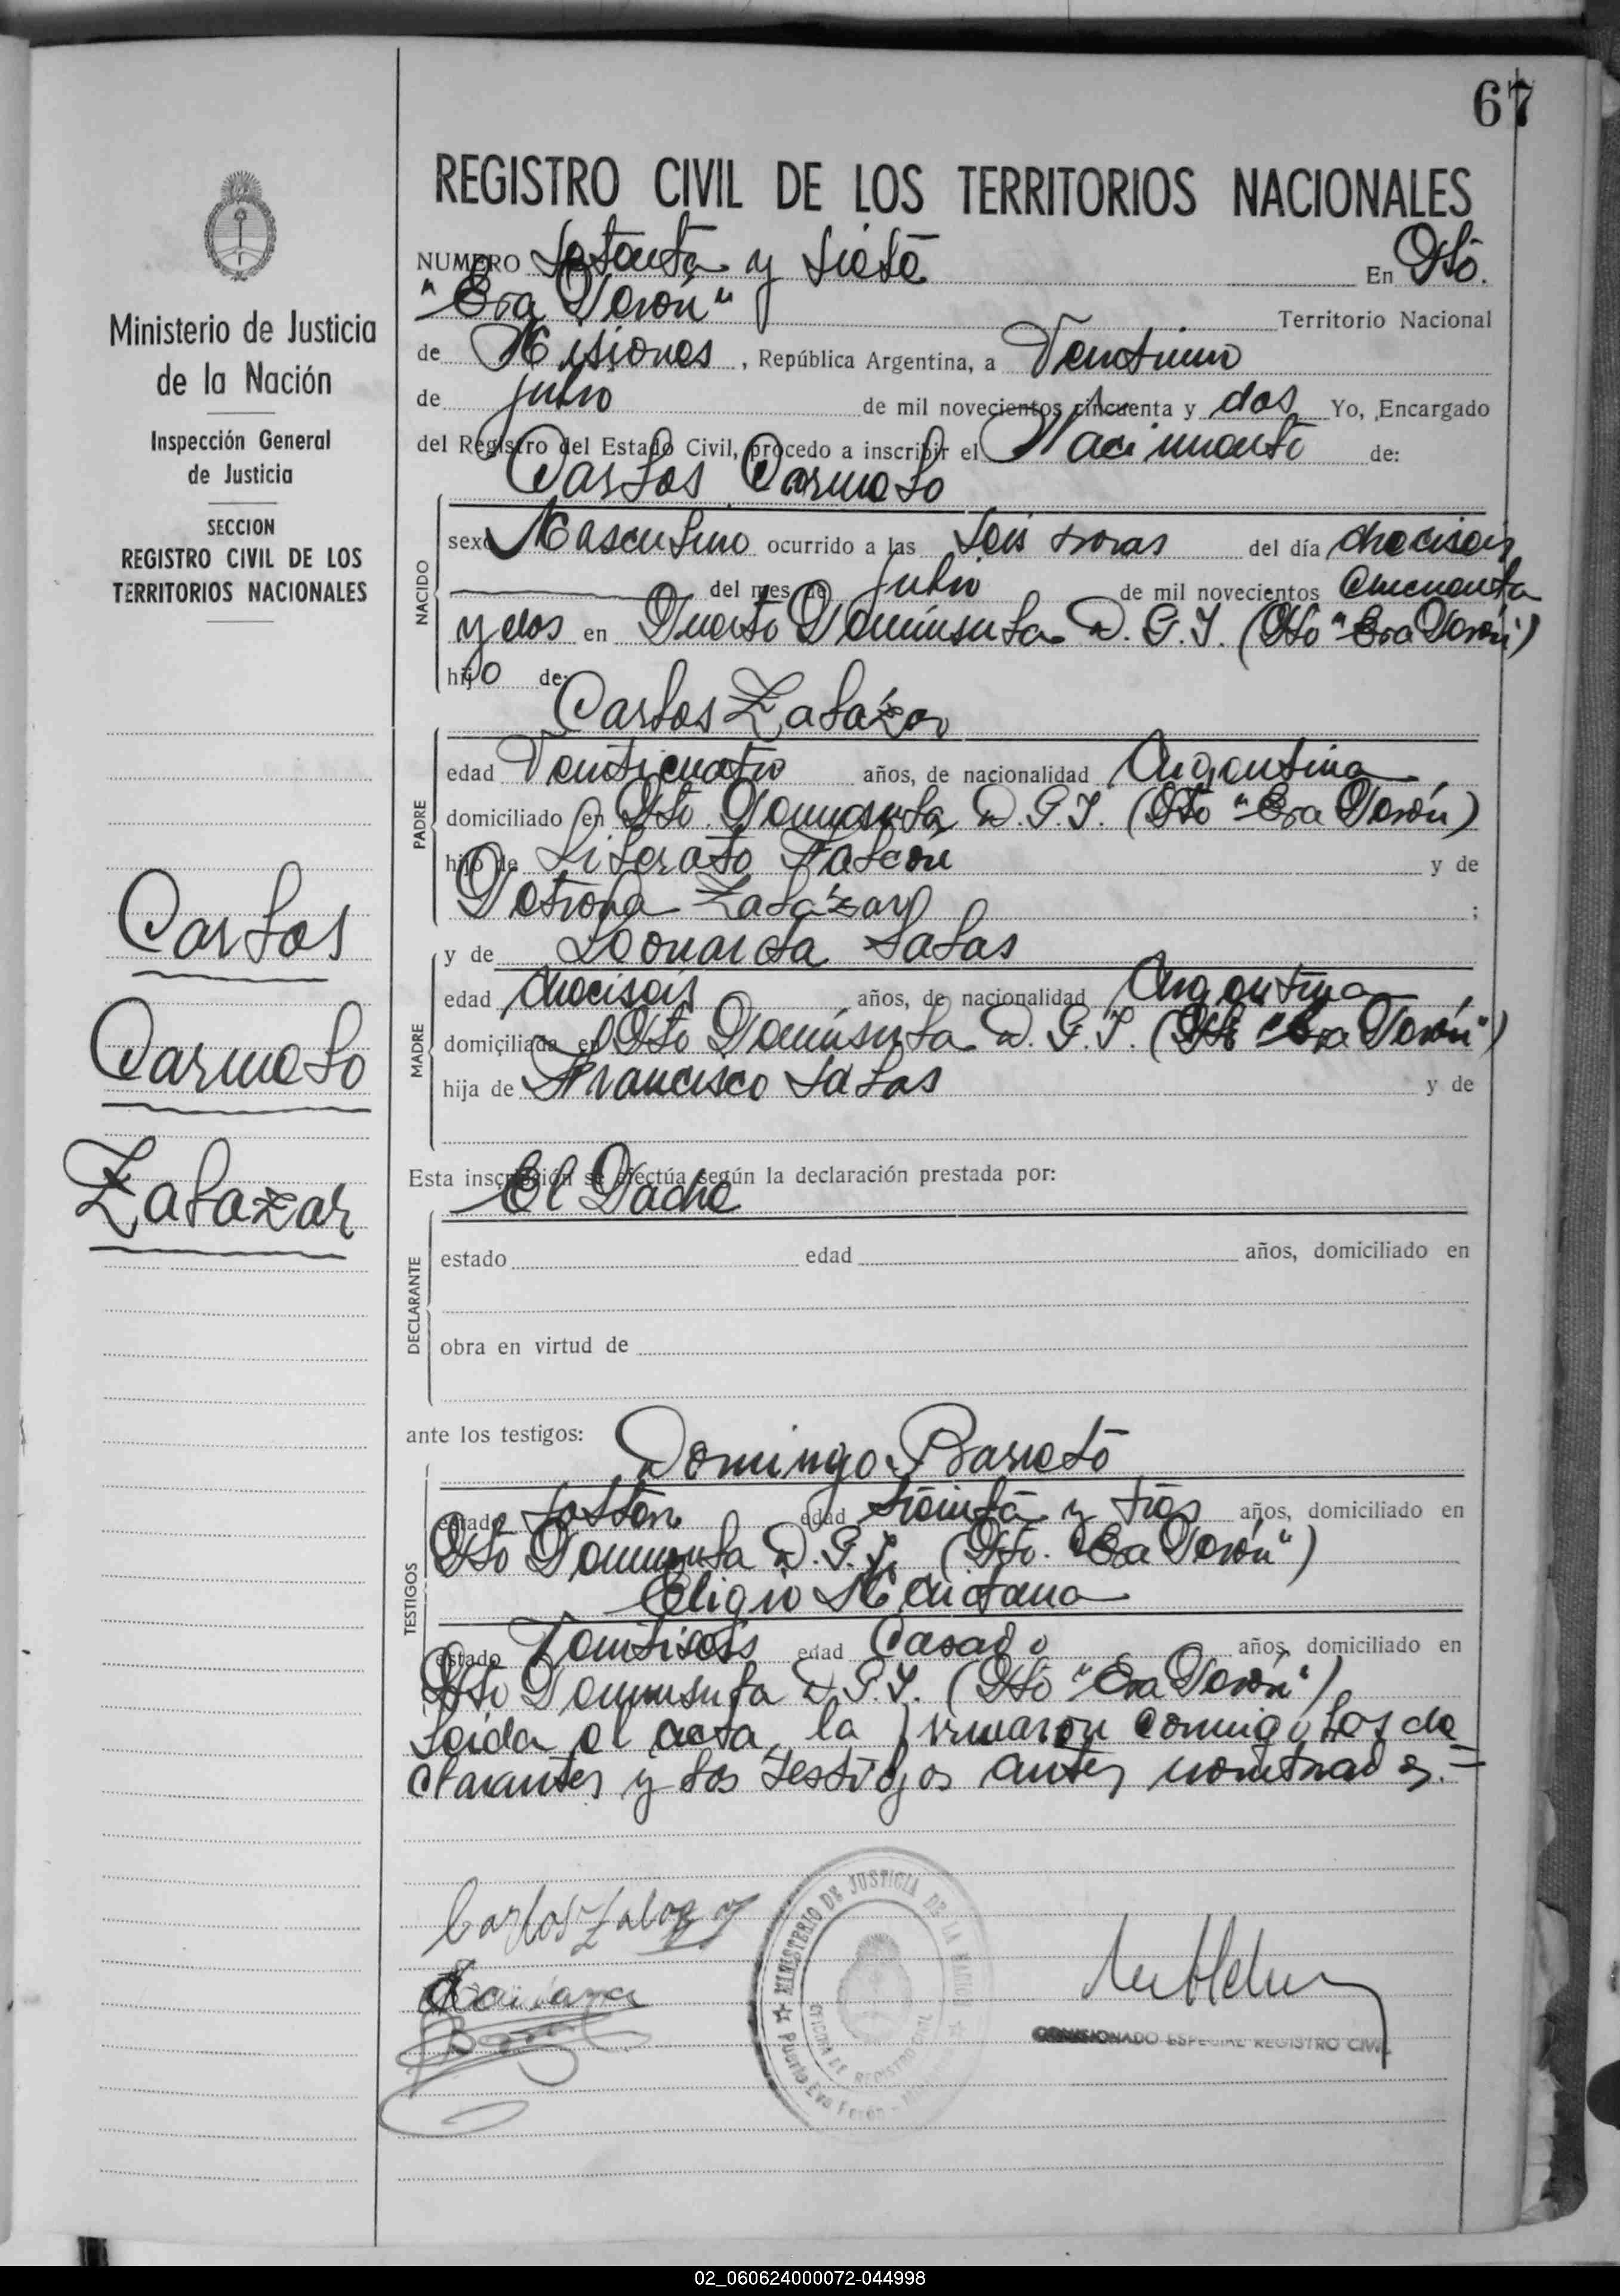 67
REGISTRO CIVIL DE LOS TERRITORIOS NACIONALES
NUMERO Setenta y Siete En Pto.
"Eva Perón" Territorio Nacional
de Misiones, República Argentina, a Ventiuno
de julio de mil novecientos cincuenta y dos Yo, Encargado
del Registro del Estado Civil, procedo a inscribir el Nacimiento de:
Carlos Carmelo
NACIDO
sexo Masculino ocurrido a las Seis horas del día dieciseis
del mes de julio de mil novecientos Cincuenta
y dos en Puerto Península D. G. I. (Pto "Eva Perón")
hijo de:
Carlos Zalázar
PADRE
edad Venticuatro años, de nacionalidad Argentina,
domiciliado en Pto. Península D. G. I. (Pto "Eva Perón)
hijo de Liberato Falcón y de
Petrona Zalázar ;
y de Leonarda Salas
MADRE
edad dieciseis años, de nacionalidad Argentina,
domiciliada en Pto Península D. G. I. (Pto "Eva Perón")
hija de Francisco Salas y de
Esta inscripción se efectúa según la declaración prestada por:
El Padre
DECLARANTE
estado edad años, domiciliado en
obra en virtud de
ante los testigos:
Domingo Barreto
TESTIGOS
estado Solton edad treinta y tres años, domiciliado en
Pto Península D. G. I. (Pto. "Eva Perón")
Eligio Santana
estado Ventiseis edad Casado años, domiciliado en
Pto Península D. G. I. (Pto "Eva Perón")
Leida el acta, la firmaron conmigo los de
clarantes y los testigos antes nombrados.=
Carlos Zalazar
COMISIONADO ESPECIAL REGISTRO CIVIL
MINISTERIO DE JUSTICIA DE LA NACION
OFICINA DE REGISTRO CIVIL
Puerto Eva Perón
Ministerio de Justicia
de la Nación
Inspección General
de Justicia
SECCION
REGISTRO CIVIL DE LOS
TERRITORIOS NACIONALES
Carlos
Carmelo
Zalazar
02_060624000072-044998